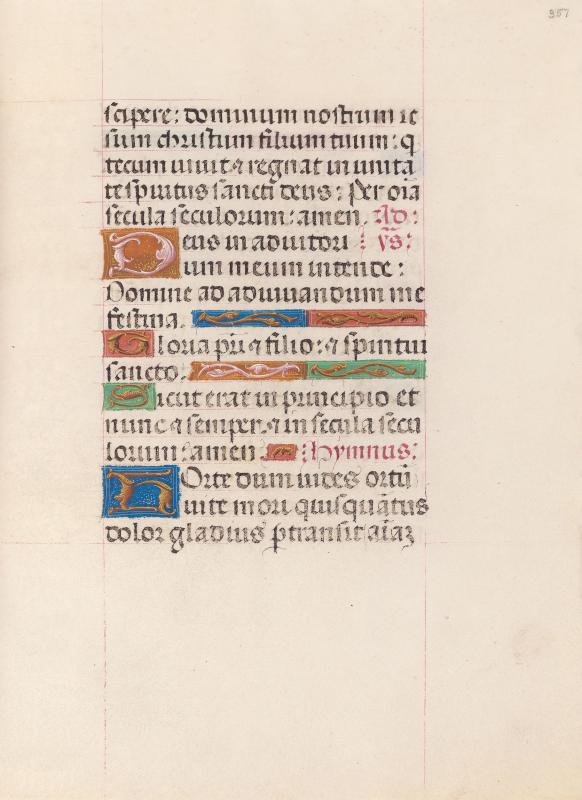 357
scipere: dominum nostrum ie
sum christum filium tuum: q̄
tecum uiuit ⁊ regnat in unita
te spiritus sancti deus: Per oīa
secula seculorum: amen. Ad:
Deus in adiutori: ȳs:
ium meum intende:
Domine ad adiuuandum me
festina.
Gloria pr̄i ⁊ filio: ⁊ spiritui
sancto:
Sicut erat in principio et
nunc ⁊ semper: ⁊ in secula secu
lorum: amen. Hymnus:
Orte dum uides ortū
uite mori quisquātus
dolor gladius ꝑtransit aīaꝫ